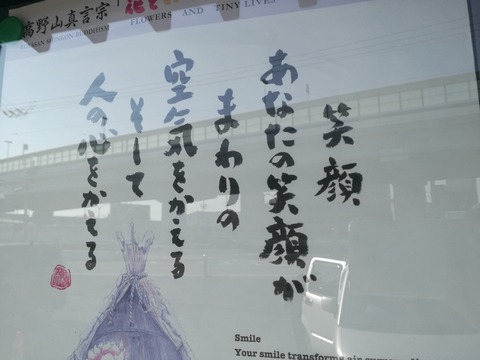 高野山真言宗
SHINGON BUDDHISM
FLOWERS AND TINY LIVES
笑顔
あなたの笑顔が
まわりの
空気をかえる
そして
人の心をかえる
Smile
Your smile transforms air